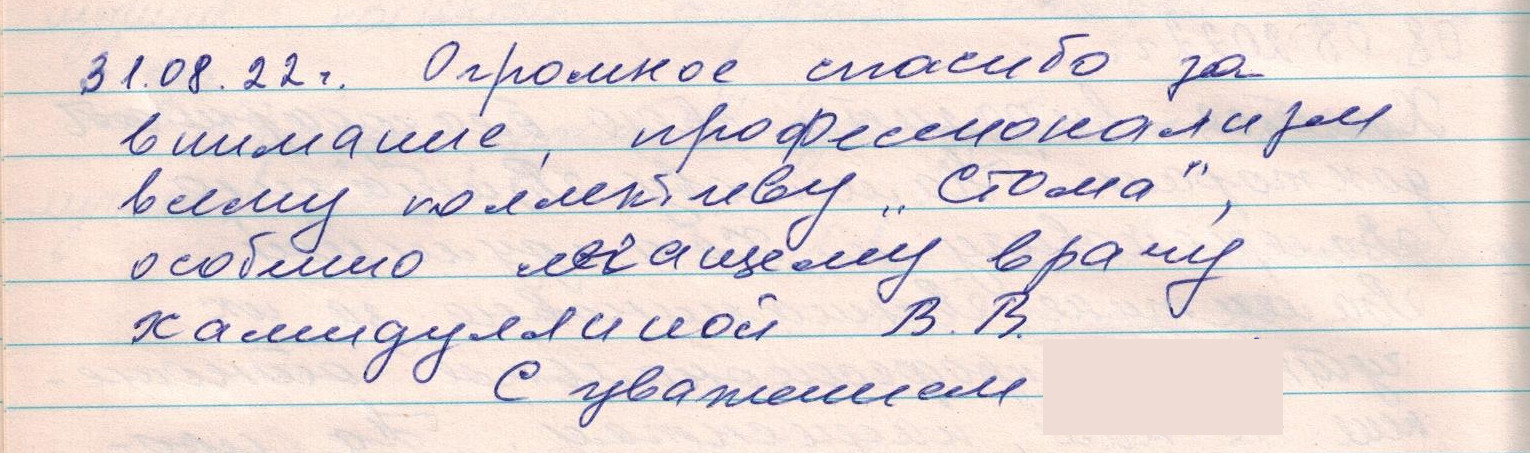 31.08.22г. Огромное спасибо за
внимание, профессионализм
всему коллективу „Стома",
особенно лечащему врачу
Хамидуллиной В.В.
С уважением